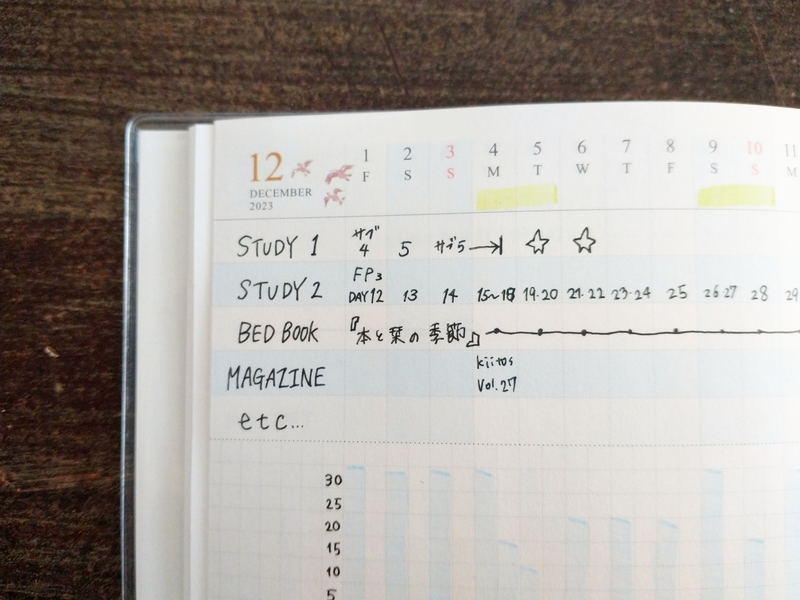 12 1 2 3 4 5 6 7 8 9 10 11
DECEMBER F S S M T W T F S S M
2023
STUDY 1 サブ4 5 サブ5→ ☆ ☆
STUDY 2 FP3 DAY12 13 14 15~18 19·20 21·22 23·24 25 26·27 28 29
BED BOOK 『本と栞の季節』
MAGAZINE kiitos Vol.27
etc...
30
25
20
15
10
5